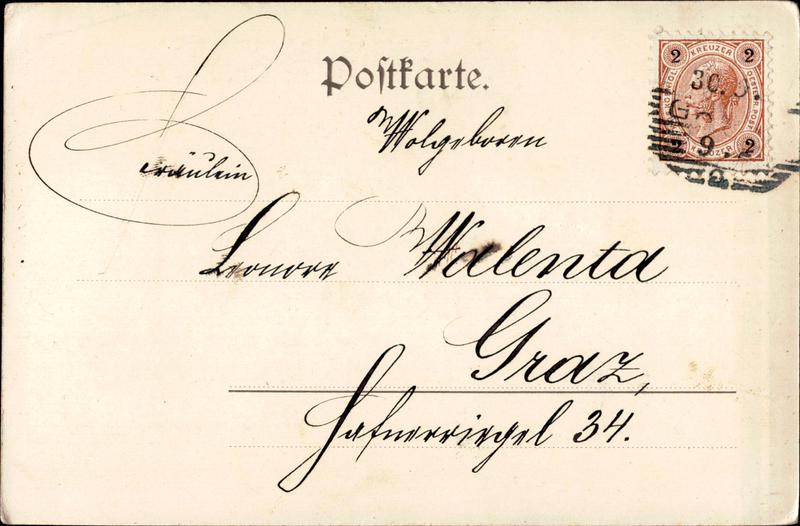 Postkarte.
2 KREUZER 2
30.
G
9
2 KREUZER 2
Wolgeboren
Fräulein
Leonore Walenta
Graz,
Hafnerriegel 34.